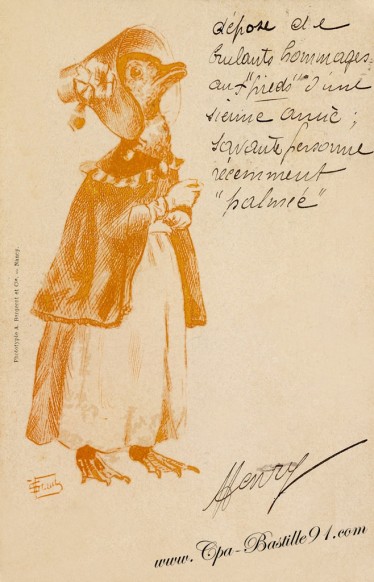 dépose de
brulants hommages
aux "pieds" d'une
sienne amie ;
savante personne
récemment
"palmée"
Henry
Phototypie A. Bergeret et Cie. — Nancy.
www.Cpa-Bastille91.com